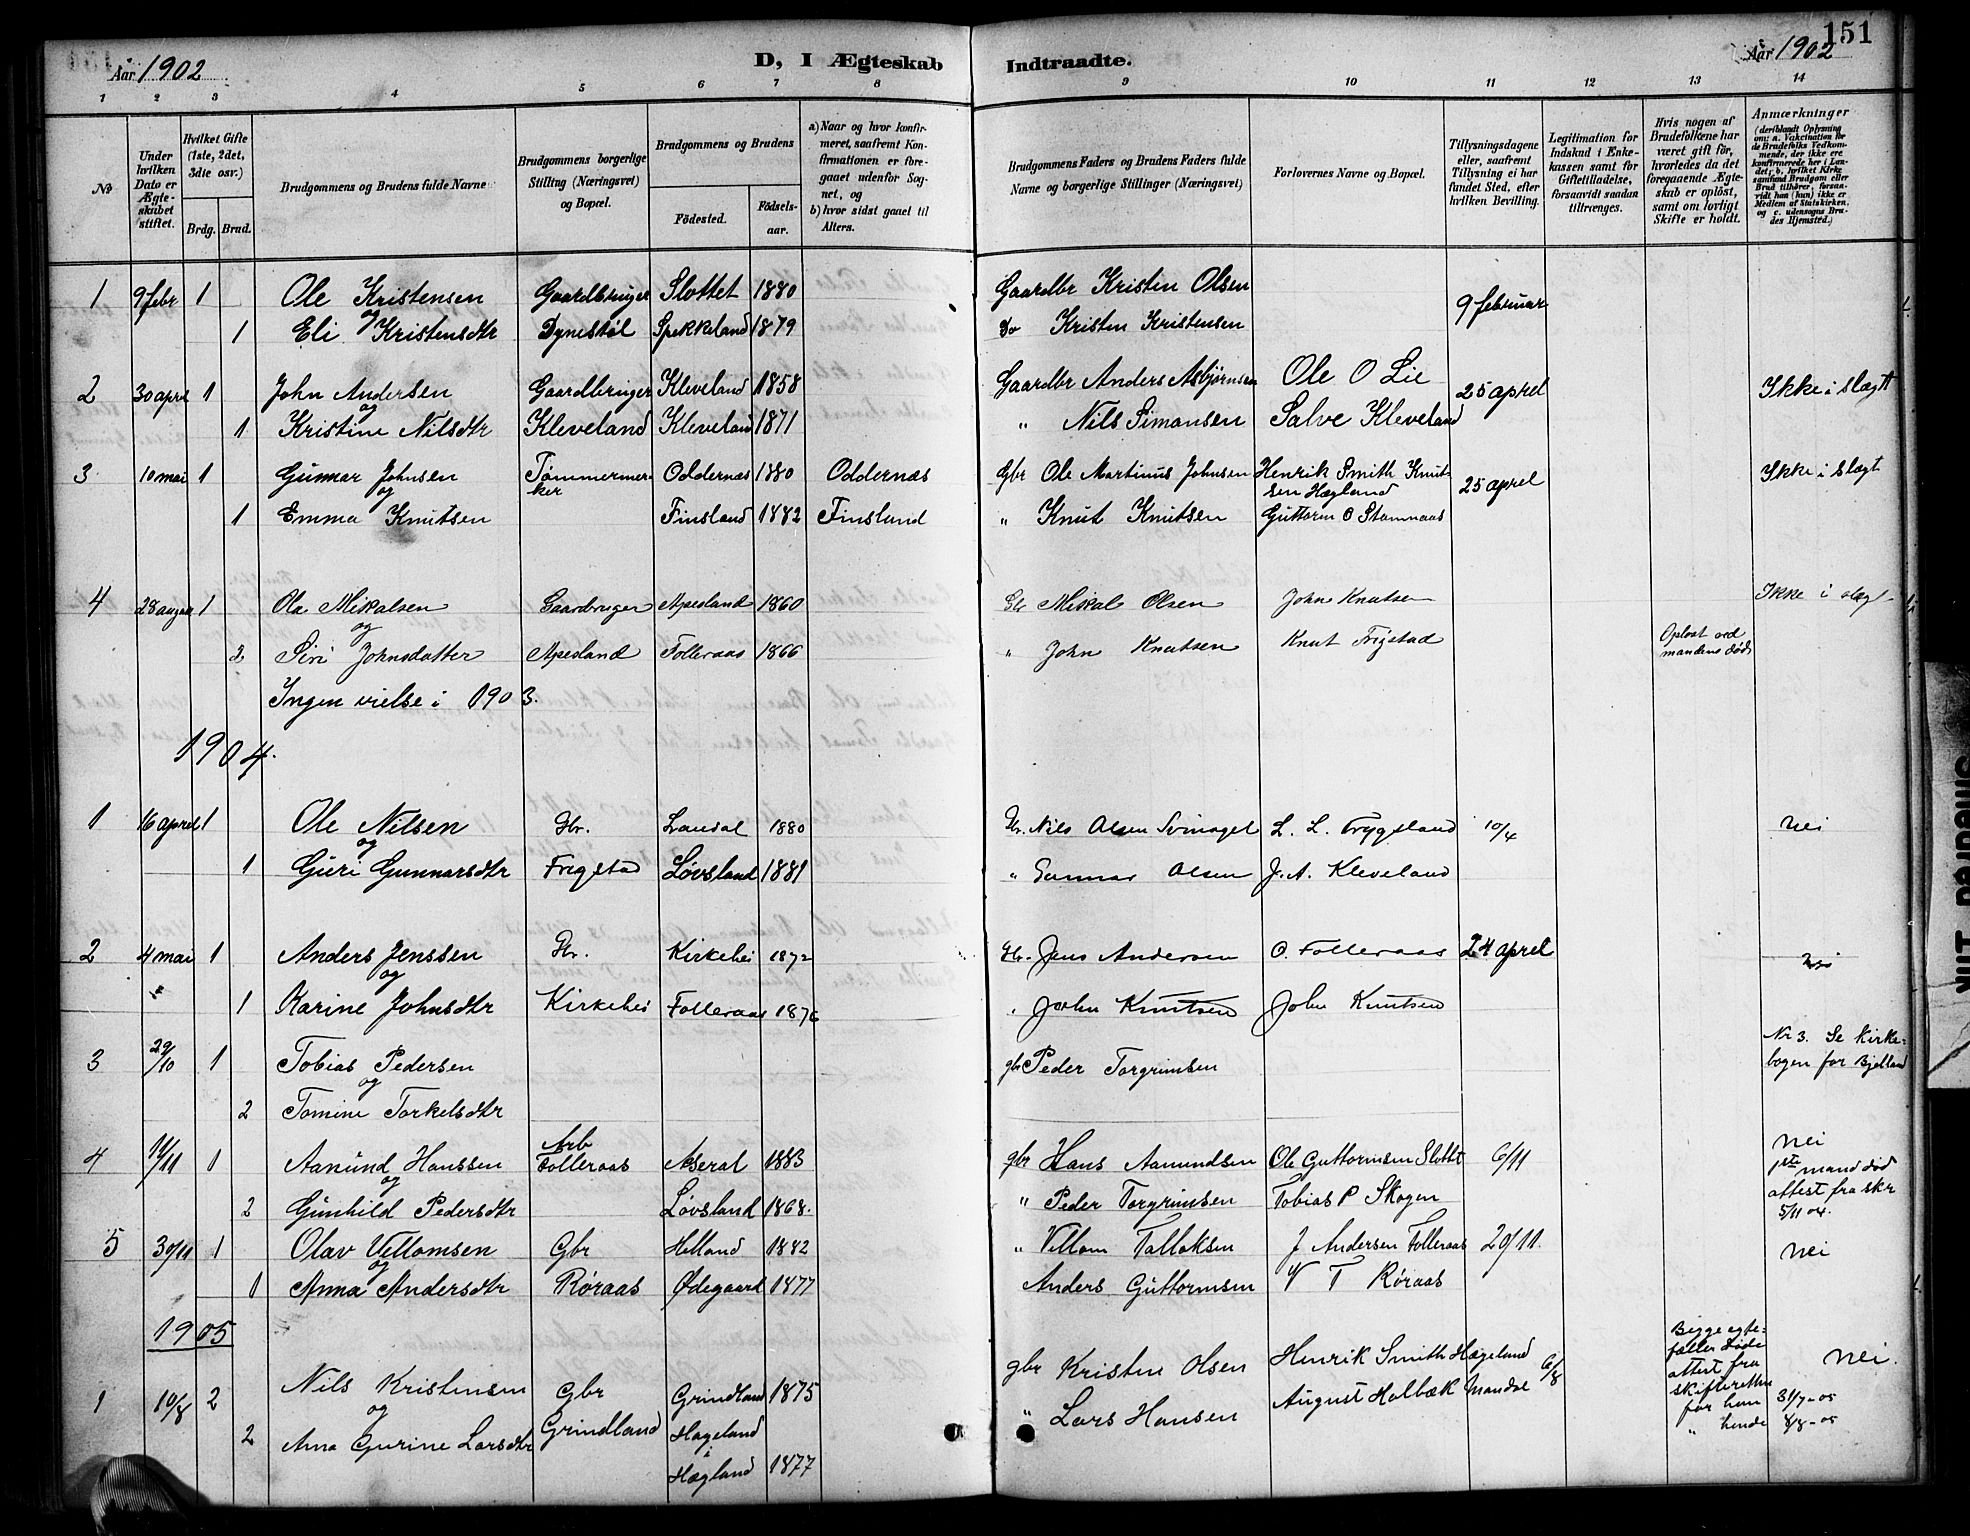 151
Aar 1902
D, I Ægteskab Indtraadte.
Aar 1902
1 2 3 4 5 6 7 8 9 10 11 12 13 14
No
Under hvilken Dato er Ægteskabet stiftet.
Hvilket Gifte (1ste, 2det, 3die osv.)
Brdg. Brud.
Brudgommens og Brudens fulde Navne
Brudgommens borgerlige Stilling (Næringsvei) og Bopæl.
Brudgommens og Brudens
Fødested.
Födsels-aar.
a) Naar og hvor konfirmeret, saafremt Konfirmationen er foregaaet udenfor Sognet, og
b) hvor sidst gaaet til Alters.
Brudgommens Faders og Brudens Faders fulde Navne og borgerlige Stillinger (Næringsvei)
Forlovernes Navne og Bopæl.
Tillysningsdagene eller, saafremt Tillysning ei har fundet Sted, efter hvilken Bevilling.
Legitimation for Indskud i Enkekassen samt for Giftetilladelse, forsaavidt saadan tiltrænges.
Hvis nogen af Brudefolkene har været gift för, hvorledes da det foregaaende Ægteskab er oplöst, samt om lovligt Skifte er holdt.
Anmærkninger
(deriblandt Oplysning om: a. Vakcination for de Brudefolks Vedkommende, der ikke ere konfirmerede her i Landet; b. hvilket Kirkesamfund Brudgom eller Brud tilhörer, forsaavidt han (hun) ikke er Medlem af Statskirken, og c. udensogns Brudes Hjemsted.)
1 9 febr 1 Ole Kristensen Gaardbruger Slottet 1880 Gaardbr Kristen Olsen 9 februar
og
1 Eli Kristensdtr Dynestøl Spekkeland 1879 Do Kristen Kristensen
2 30 aprl 1 John Andersen Gaardbruger Kleveland 1858 Gaardbr Anders Asbjørnsen Ole O Lie 25 aprel Ikke i slægt
og
1 Kristine Nilsdtr Kleveland Kleveland 1871 " Nils Simonsen Salve Kleveland
3 10 mai 1 Gunnar Johnsen Tømmermer- Oddernæs 1880 Oddernæs Gbr Ole Martinus Johnsen Henrik Smith Knut- 25 aprel Ikke i slægt
og ker sen Hægland
1 Emma Knutsen Finsland 1882 Finsland " Knut Knutsen Guttorm O Stamnaas
4 28 august 1 Ola Mikalsen Gaardbruger Apesland 1860 Gbr Mikal Olsen John Knutsen Ikke i slægt
og
2 Siri Johnsdatter Apesland Folleraas 1866 " John Knutsen Knut Frigstad Opløst ved
mandens død
Ingen vielse i 1903.
1904.
1 16 aprel 1 Ole Nilsen Gbr. Laudal 1880 Gbr. Nils Olsen L. L. Trygsland 10/4 nei
og
1 Guri Gunnarsdtr Frigstad Løvsland 1881 " Gunnar Olsen J. A. Kleveland
2 4 mai 1 Anders Jenssen Gbr. Kirkehei 1872 Gbr. Jens Andersen O. Folleraas 24 aprel nei
og
1 Karine Johnsdtr Kirkehei Folleraas 1876 " John Knutsen John Knutsen
3 29/10 1 Tobias Pedersen gbr Peder Torgrimsen Nr 3. Se Kirke-
og bogen for Bjelland
2 Tomine Torkelsdtr
4 11/11 1 Aanund Hanssen Arb Folleraas Aseral 1883 gbr Hans Aamundsen Ole Guttormsen Slottet 6/11 nei
og 1ste mand død
2 Gunhild Pedersdtr Løvsland 1868. " Peder Torgrimsen Tobias P Skogen attest fra skr
5/11 04.
5 30/11 1 Olav Vellomsen Gbr Helland 1882 " Vellom Tallaksen J Andersen Folleraas 20/11. nei
og
1 Anna Andersdtr Røraas Ødegaard 1877 Anders Guttormsen V T Røraas
1905
1 10/8 2 Nils Kristensen Gbr Grindland 1875 gbr Kristen Olsen Henrik Smith Hægeland 6/8 nei.
og
2 Ana Gurine Larsdtr Grindland Hageland i Hægland 1877 " Lars Hansen August Holbæk Mandal
Begge egte-
feller døde
attest fra
skifteretten
for ham 31/7-05
" hende 8/8-05